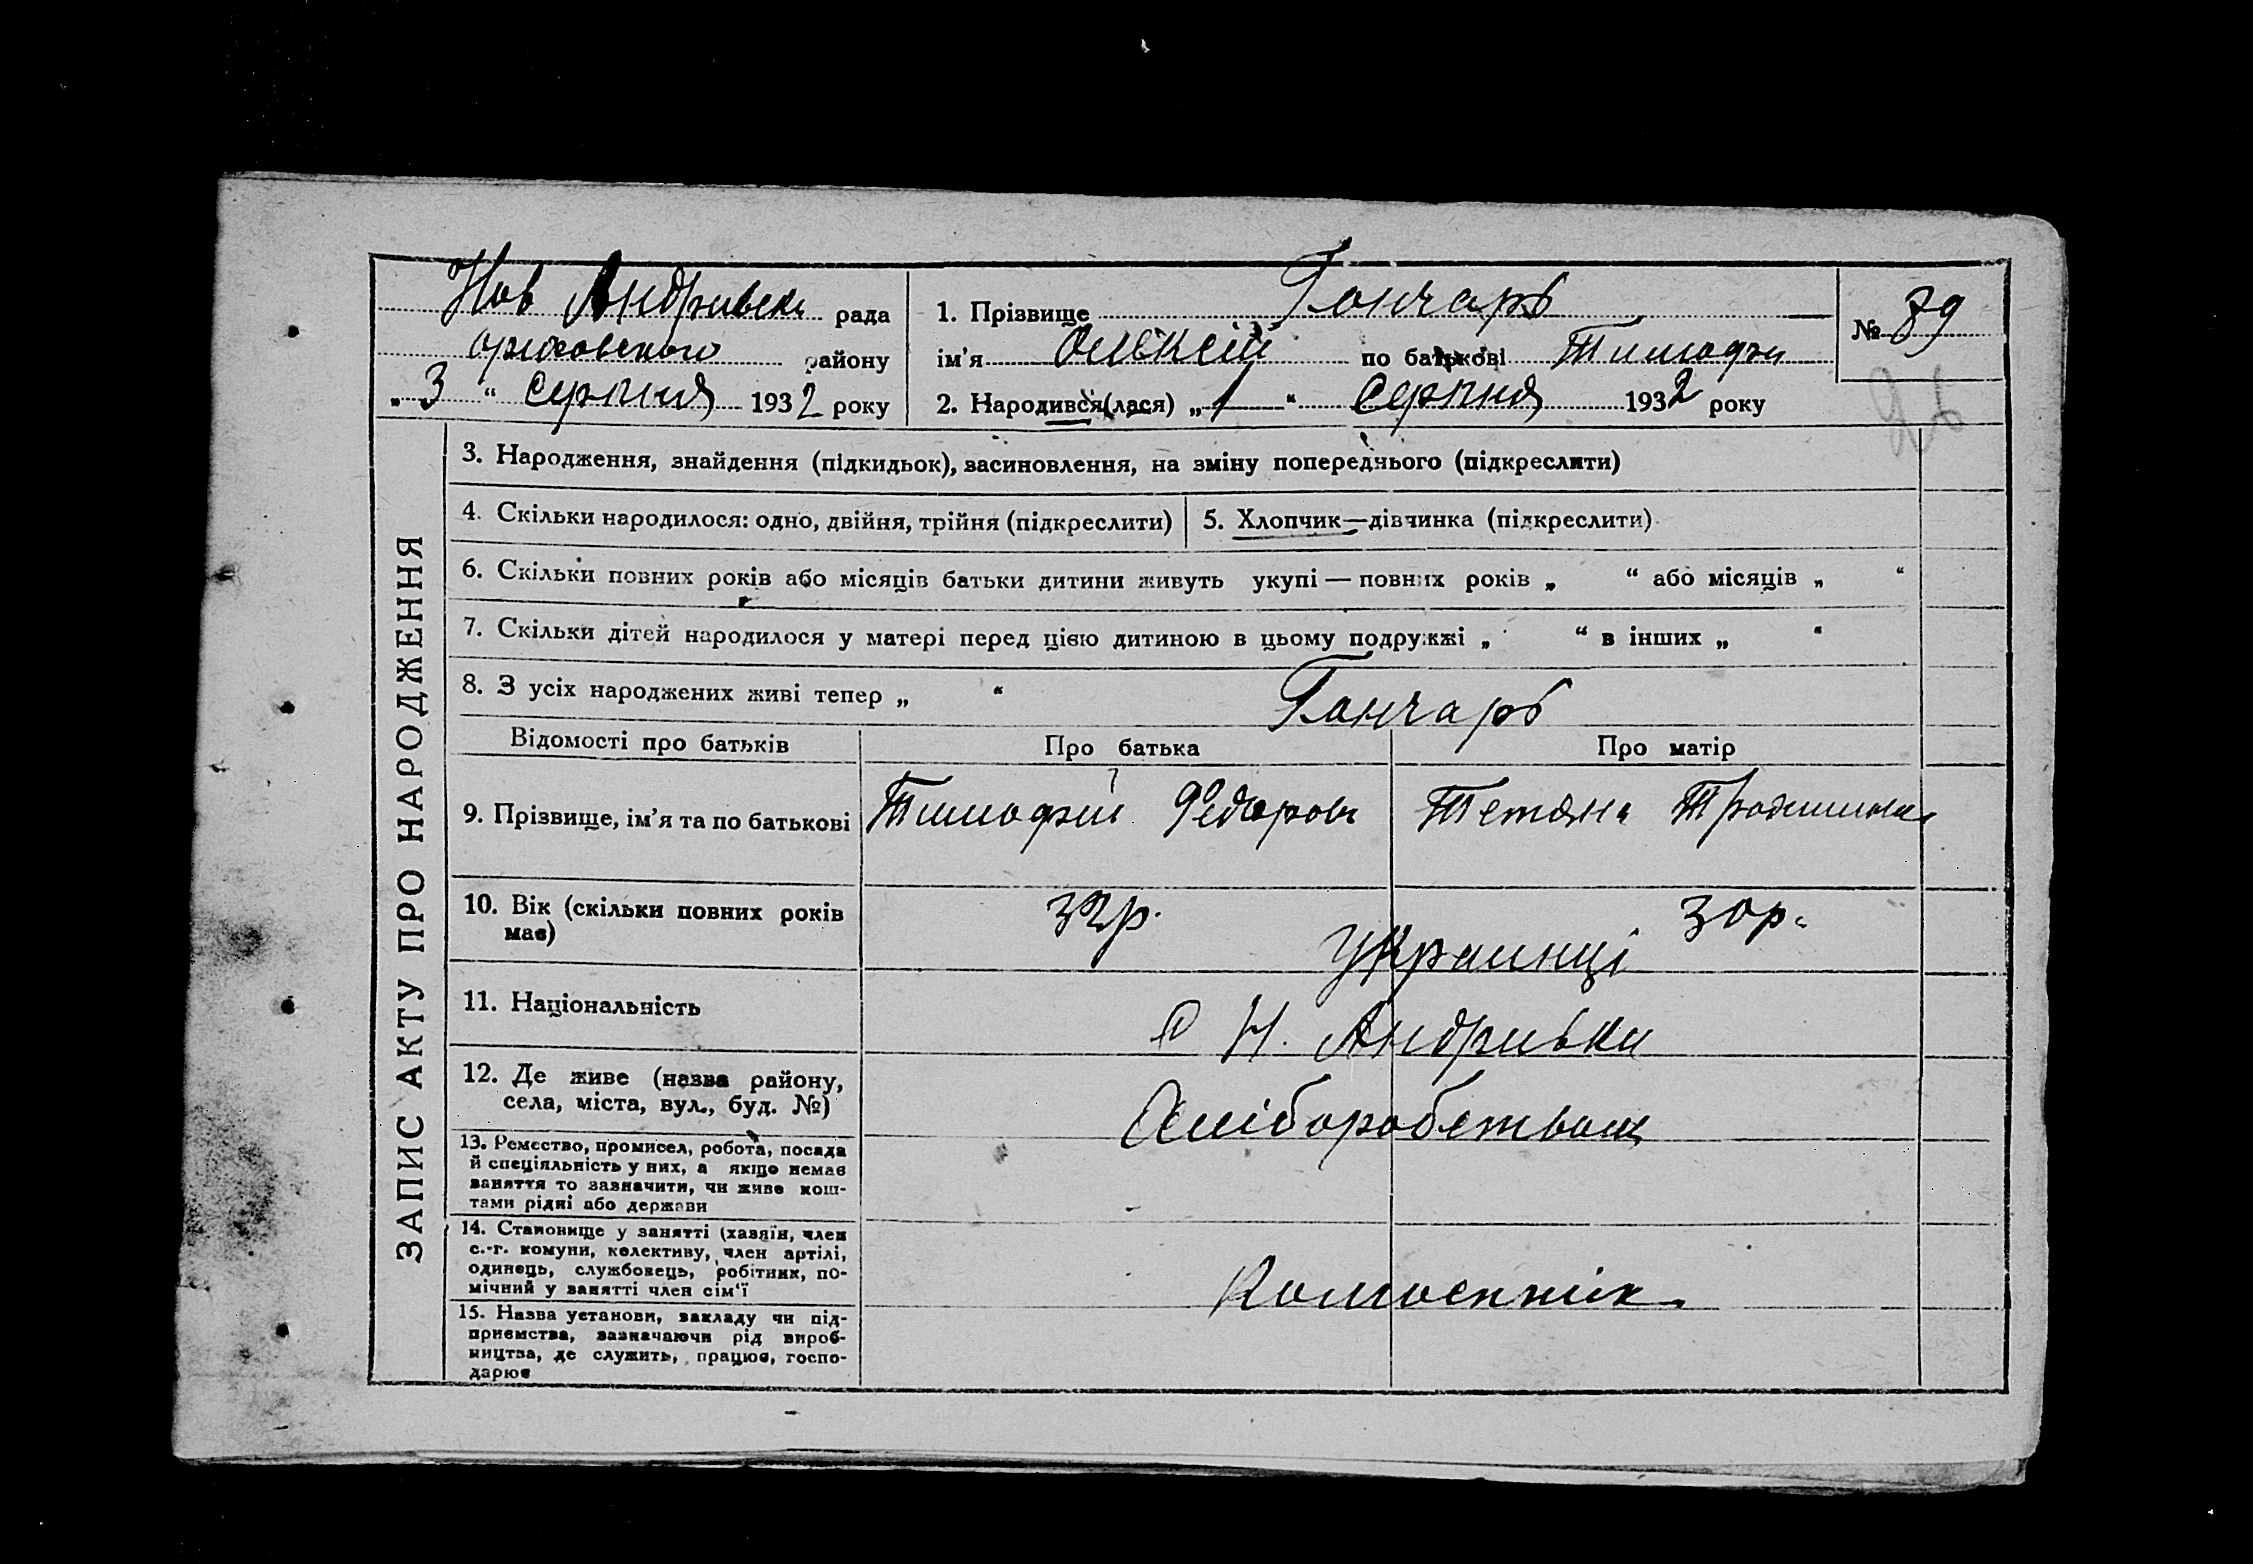 Нов Андривськ рада
оріховского району
„ 3 “ Серпня 1932 року
1. Прізвище Гончарь
ім'я Олексій по батькові Тимофэи
2. Народився(лася) „ 1 “ Серпня 1932 року
№ 89
ЗАПИС АКТУ ПРО НАРОДЖЕННЯ
3. Народження, знайдення (підкидьок), засиновлення, на зміну попереднього (підкреслити)
4. Скільки народилося: одно, двійня, трійня (підкреслити)
5. Хлопчик—дівчинка (підкреслити)
6. Скільки повних років або місяців батьки дитини живуть укупі — повних років „ “ або місяців „ “
7. Скільки дітей народилося у матері перед цією дитиною в цьому подружжі „ “ в інших „ “
8. З усіх народжених живі тепер „ “
Гончарь
Відомості про батьків Про батька Про матір
9. Прізвище, ім'я та по батькові Тимофэй Федоров Тетяна
10. Вік (скільки повних років
має)
32р. 30р.
Украинці
11. Національність
с Н. Андривки
12. Де живе (назва району,
села, міста, вул., буд. №)
Хліборобством
13. Ремество, промисел, робота, посада
й спеціяльність у них, а якщо немає
заняття то зазначити, чи живе кош-
тами рідні або держави
14. Становище у занятті (хазяїн, член
с.-г. комуни, колективу, член артілі,
одинець, службовець, робітник, по-
мічний у занятті член сім'ї
15. Назва установи, закладу чи під-
приємства, зазначаючи рід вироб-
ництва, де служить, працює, госпо-
дарює